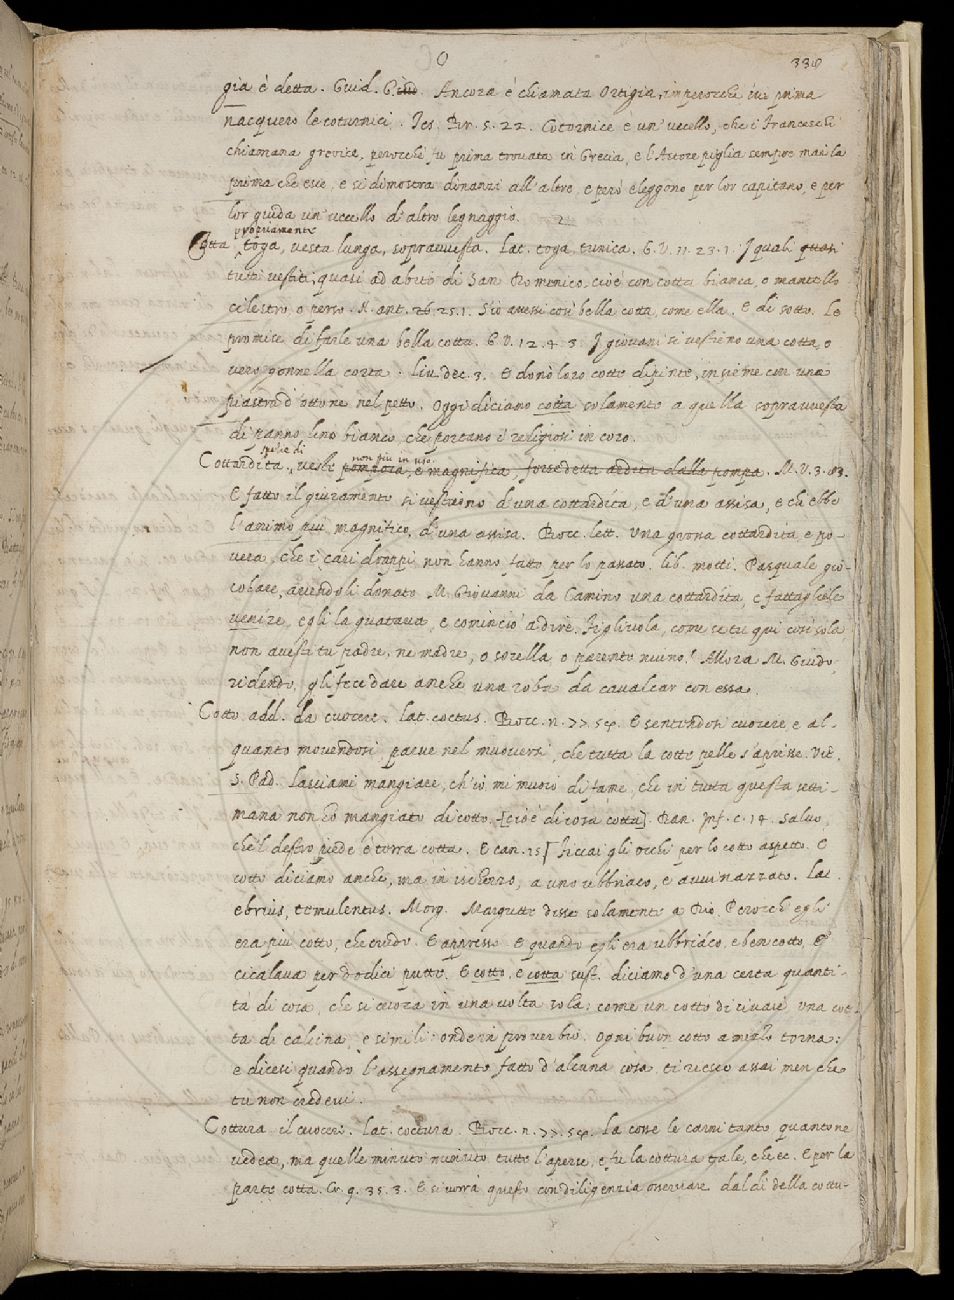 O 338
gia è detta. Guid. G. Ancora è chiamata Ortigia, imperocchè ivi prima
nacquero le coturnici. Tes. Br. 5. 22. Cotornice è un' uccello, che i Franceschi
chiamano grevice, perocchè fu prima trovata in Grecia, e l'Autore piglia sempre mai la
prima che esce, e si dimostra dinanzi all' altre, e però eleggono per lor capitano, e per
lor guida un' uccello d' altro legnaggio.
propriamente
Cotta toga, vesta lunga, sopravvesta. Lat. toga, tunica. G. V. 11. 23. 1. I quali quasi
tutti vestiti, quasi ad abito di San Domenico, cioè con cotta bianca, e mantello
cilestro, o perso. N. ant. 26. 25. 1. S'io avessi così bella cotta, come ella. E di sotto. Le
promise di farle una bella cotta. G. V. 12. 4. 3. I giovani si vestieno una cotta, o
vero gonnella corta. Liv. dec. 3. E donò loro cotte dipinte, insieme con una
piastra d' ottone nel petto. Oggi diciamo cotta solamente a quella sopravvesta
di panno lino bianco, che portano i religiosi in coro.
spezie di non più in uso
Cottardita, veste pomposa, e magnifica, forse detta ardita dalla pompa. M. V. 3. 83.
E fatto il giuramento si vestirono d'una cottardita, e d'una assisa, e chi ebbe
l'animo più magnifico, d'una assisa. Bocc. lett. Una grossa cottardita, e po-
vera, che i cari drappi non hanno fatto per lo passato. lib. motti. Pasquale gio-
colare, avendoli donato M. Giovanni da Camino una cottardita, e fattagliele
venire, egli la guatava, e cominciò a dire. Figliuola, come se tu qui così sola
non avesti tu padre, ne madre, o sorella, o parente niuno? Allora M. Guido,
ridendo, gli fece dare anche una roba da cavalcar con essa.
Cotto add. da cuocere. Lat. coctus. Bocc. n. 77. 54. E sentendosi cuocere, e al-
quanto movendosi parve nel muoversi, che tutta la cotta pelle s'aprisse. Vit.
S. Pad. Lasciami mangiare, ch'io mi muoio di fame, che in tutta questa setti-
mana non ho mangiato di cotto. [cioè di cosa cotta]. Dan. Inf. c. 14. Salvo,
che'l destro piede è terra cotta. E can. 15 ficcai gli occhi per lo cotto aspetto. E
cotto diciamo anche, ma in ischerzo, a uno ubbriaco, e avvinazzato. Lat.
ebrius, temulentus. Morg. Margutte disse solamente a Dio. Perocch' egli
era più cotto, che crudo. E appresso. E quando egli era ubbriaco, e ben cotto, E'
cicalava per dodici putte. E cotto, e cotta sust. diciamo d'una certa quanti-
tà di cosa, che si cuoca in una volta sola: come un cotto di civaie, una cot-
ta di calcina, e simili: onde in proverbio. Ogni buon cotto a mezzo torna:
e dicesi quando l'assegnamento fatto d'alcuna cosa, ti riesce assai men che
tu non credevi.
Cottura il cuocere. Lat. coctura. Bocc. n. 77. 54. la cosse le carni tanto quanto ne
vedea, ma quelle minuto minuto tutte l'aperse, e fu la cottura tale, che ec. E per la
parte cotta. Cr. 9. 35. 3. E si vorrà questo con diligenzia osservare dal dì della cottu-